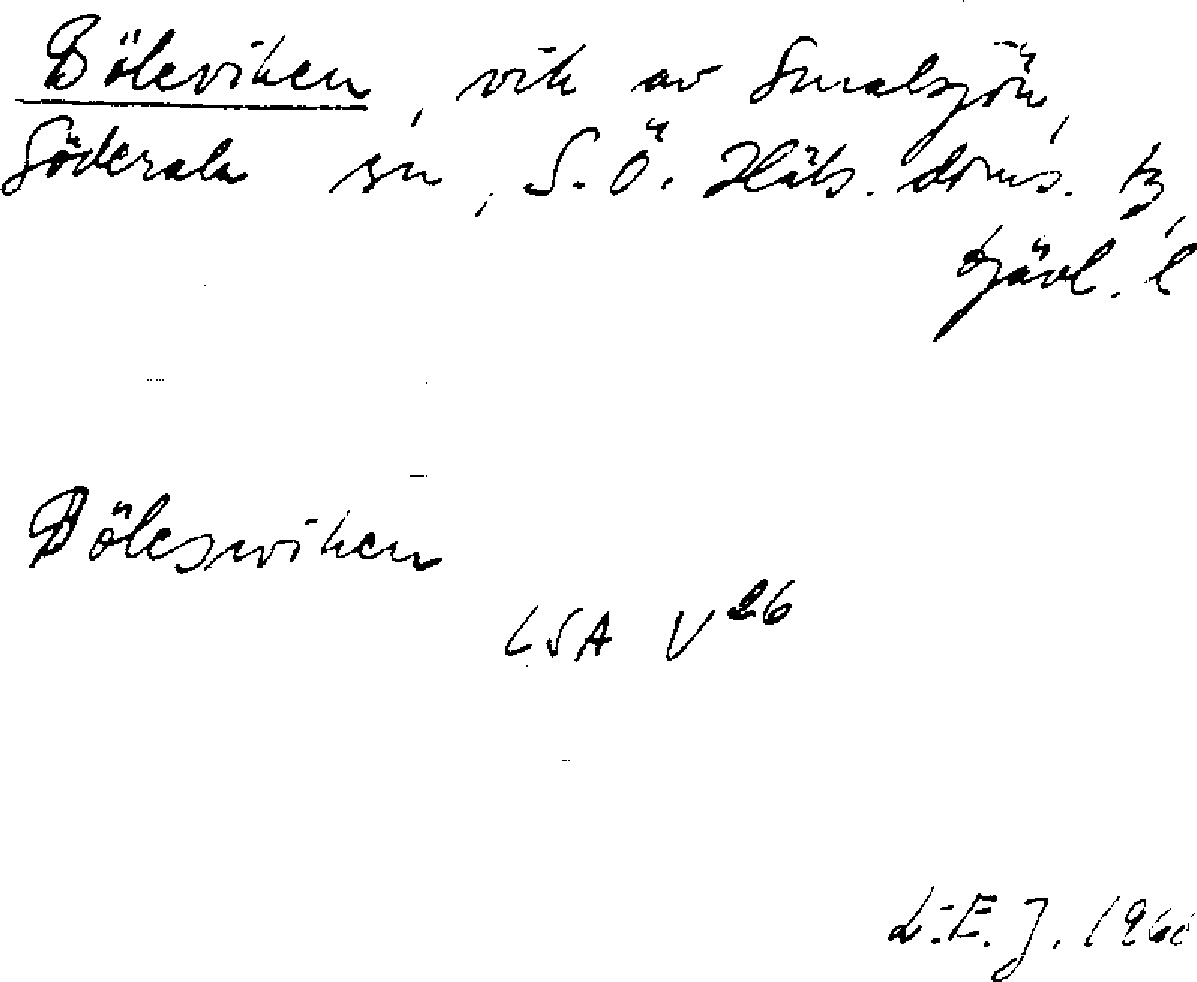 Böleviken, vik av
Söderala sn, S. Ö. Häls. doms. tg,
Gävl. l
Böleswiken
LSA V26
L.-E. J. 196